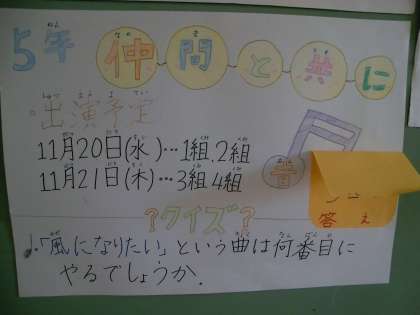 5年 仲間と共に
出演予定
11月20日(水)…1組、2組
11月21日(木)…3組 4組
音
答え
?クイズ?
1.「風になりたい」という曲は何番目に
やるでしょうか.